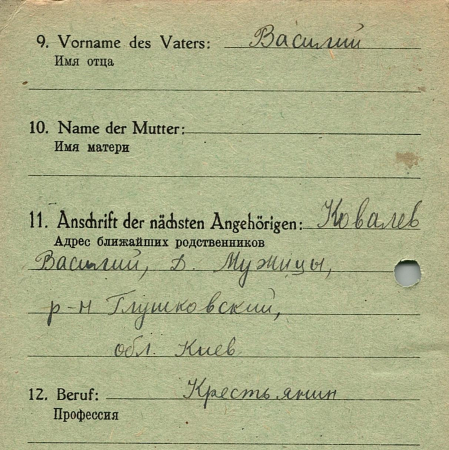 9. Vorname des Vaters: Василий
Имя отца
10. Name der Mutter:
Имя матери
11. Anschrift der nächsten Angehörigen: Ковалев
Адрес ближайших родственников
Василий, д. Мужицы,
р-н Глушковский,
обл. Киев
12. Beruf: Крестьянин
Профессия